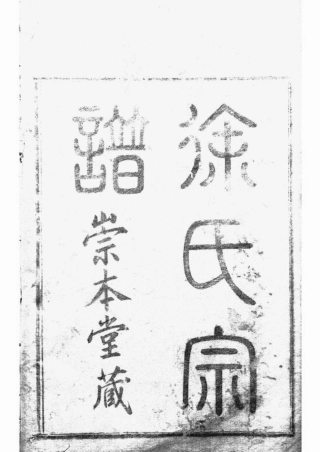 徐氏宗
譜
崇本堂藏